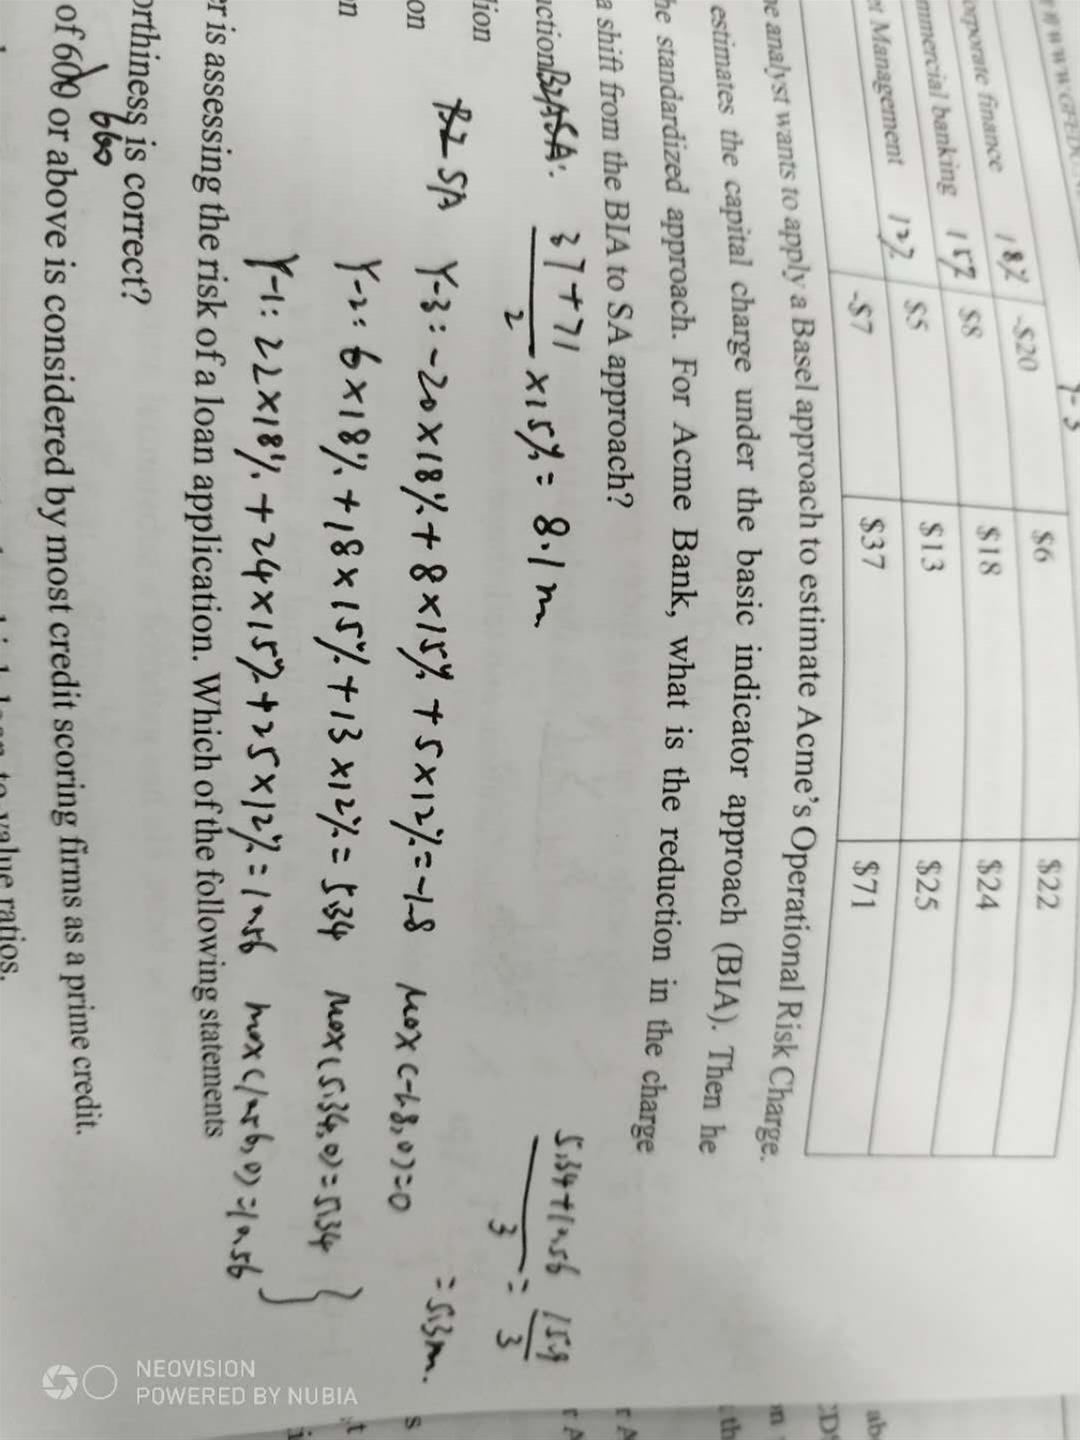 Y-3
orporate finance 18% -$20 $6 $22
mmercial banking 15% $8 $18 $24
Management 12% $5 $13 $25
-$7 $37 $71
analyst wants to apply a Basel approach to estimate Acme's Operational Risk Charge.
estimates the capital charge under the basic indicator approach (BIA). Then he
he standardized approach. For Acme Bank, what is the reduction in the charge
a shift from the BIA to SA approach?
uction
37+71 / 2 ×15% = 8.1m
5.34+10.56 / 3 = 15.9 / 3
lion
= 5.3m.
SA Y-3: -20×18%+8×15%+5×12%=-1.8 max(-1.8,0)=0
on
Y-2: 6×18%+18×15%+13×12%=5.34 max(5.34,0)=5.34
n
Y-1: 22×18%+24×15%+25×12%=10.56 max(10.56,0)=10.56
er is assessing the risk of a loan application. Which of the following statements
orthiness is correct?
660
of 600 or above is considered by most credit scoring firms as a prime credit.
to value ratios.
NEOVISION
POWERED BY NUBIA